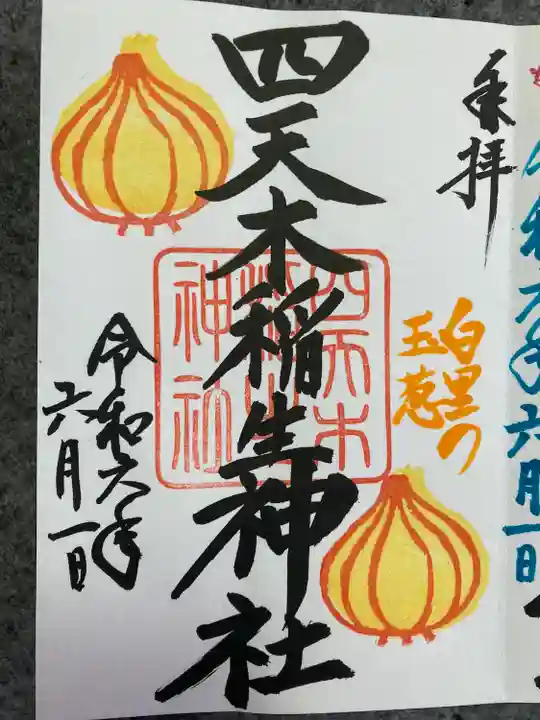 奉拝
白里の
玉葱
四天木稲生神社
四天木
稲生
神社
令和六年
六月一日
令和六年六月一日